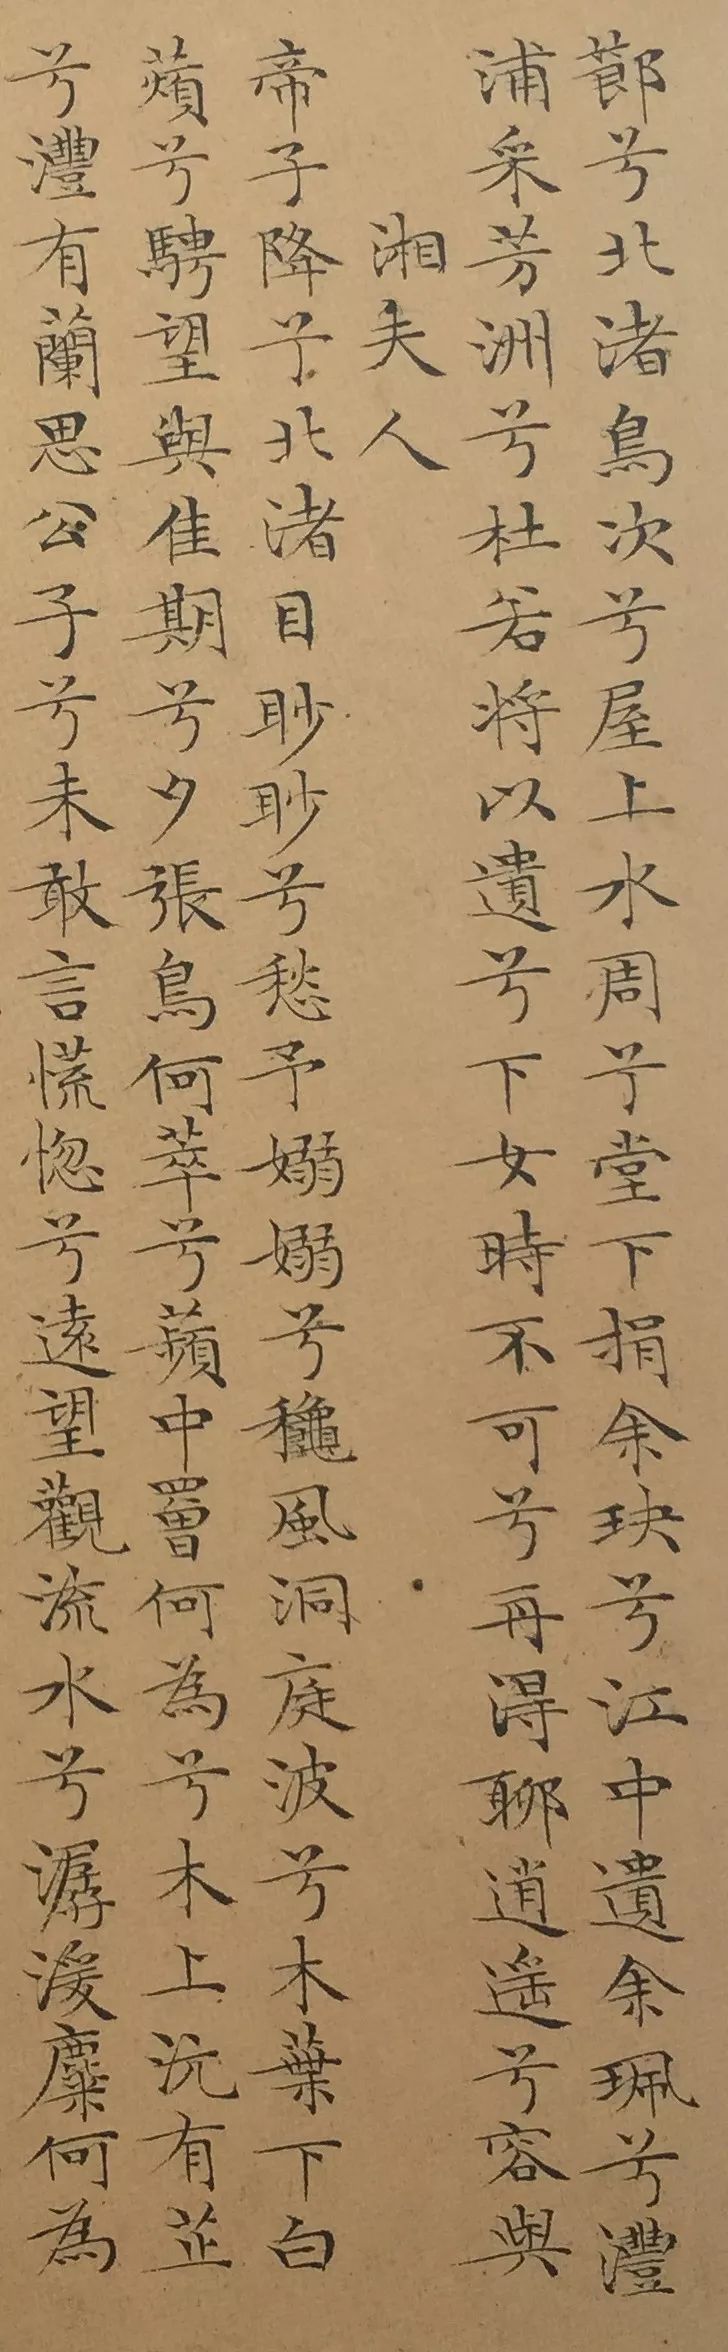 節兮北渚鳥次兮屋上水周兮堂下捐余玦兮江中遺余珮兮澧
浦采芳洲兮杜若將以遺兮下女時不可兮再得聊逍遙兮容與
湘夫人
帝子降兮北渚目眇眇兮愁予嫋嫋兮龝風洞庭波兮木葉下白
薠兮騁望與佳期兮夕張鳥何萃兮蘋中罾何為兮木上沅有芷
兮澧有蘭思公子兮未敢言慌惚兮遠望觀流水兮潺湲麋何為